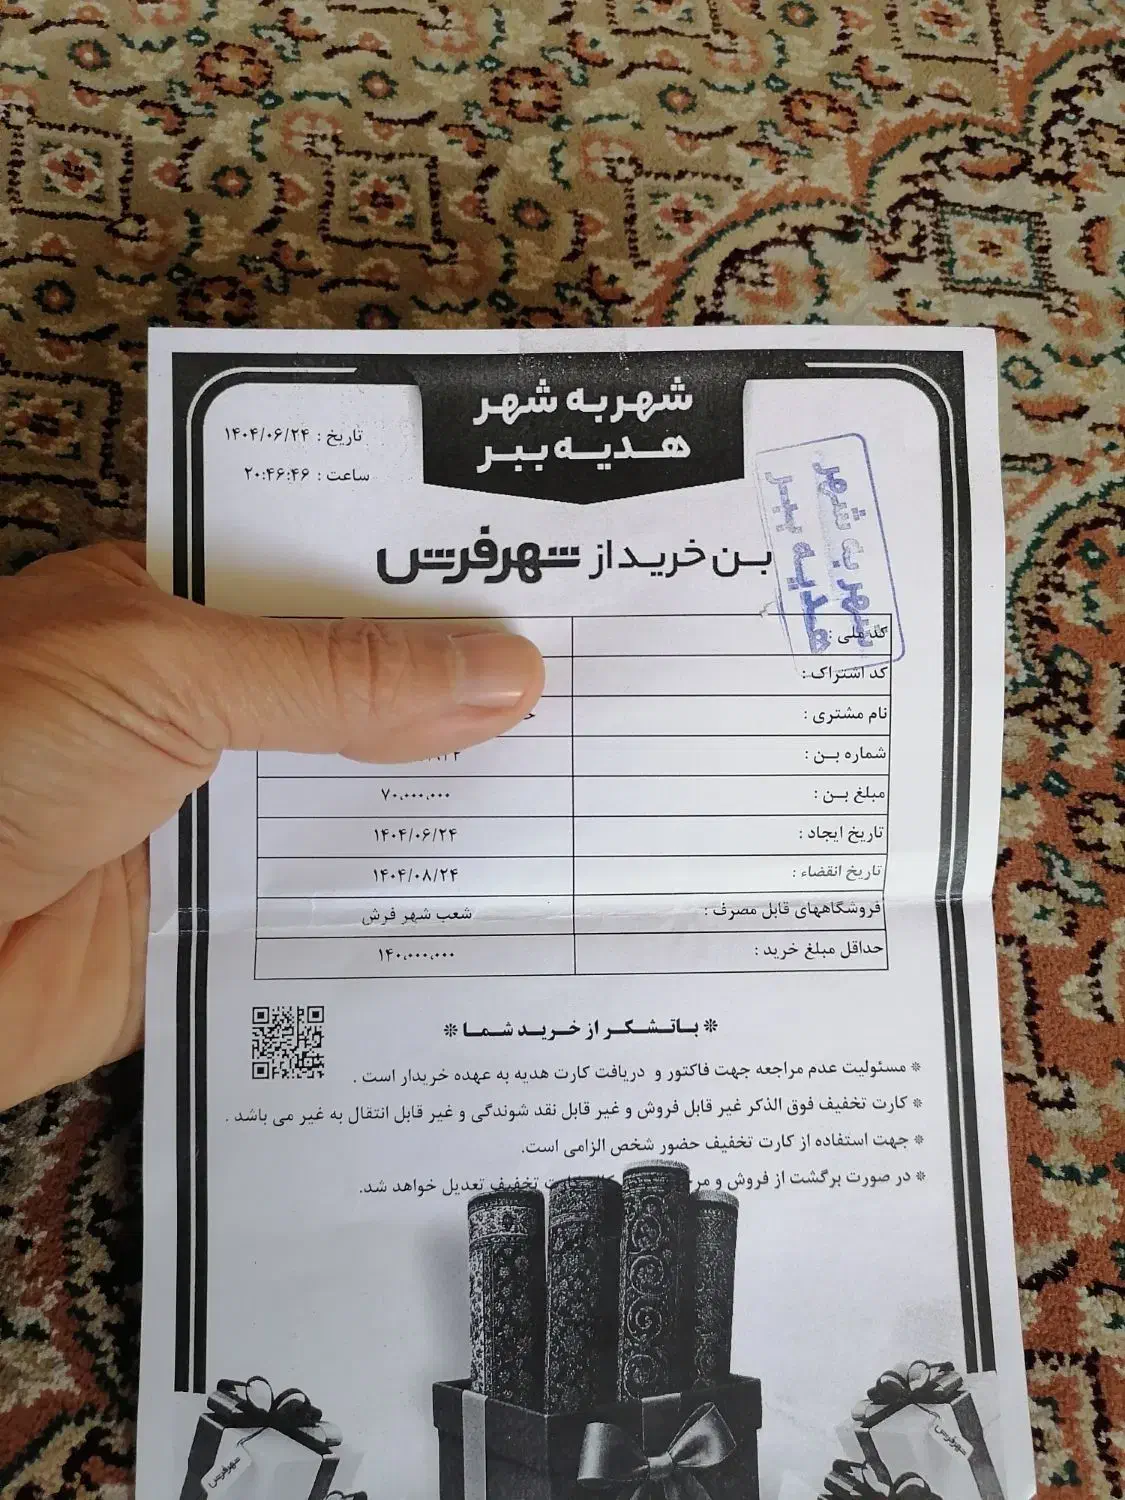 شهر به شهر
هدیه ببر
تاریخ : ۱۴۰۴/۰۶/۲۴
ساعت : ۲۰:۴۶:۴۶
شهر به شهر
هدیه ببر
بن خرید از شهرفرش
کد ملی :
کد اشتراک :
نام مشتری :
شماره بن :
مبلغ بن : ۷۰,۰۰۰,۰۰۰
تاریخ ایجاد : ۱۴۰۴/۰۶/۲۴
تاریخ انقضاء : ۱۴۰۴/۰۸/۲۴
فروشگاههای قابل مصرف : شعب شهر فرش
حداقل مبلغ خرید : ۱۴۰,۰۰۰,۰۰۰
❊ با تشکر از خرید شما ❊
❊ مسئولیت عدم مراجعه جهت فاکتور و دریافت کارت هدیه به عهده خریدار است .
❊ کارت تخفیف فوق الذکر غیر قابل فروش و غیر قابل نقد شوندگی و غیر قابل انتقال به غیر می باشد .
❊ جهت استفاده از کارت تخفیف حضور شخص الزامی است.
❊ در صورت برگشت از فروش و تخفیف تعدیل خواهد شد.
شهرفرش
شهرفرش